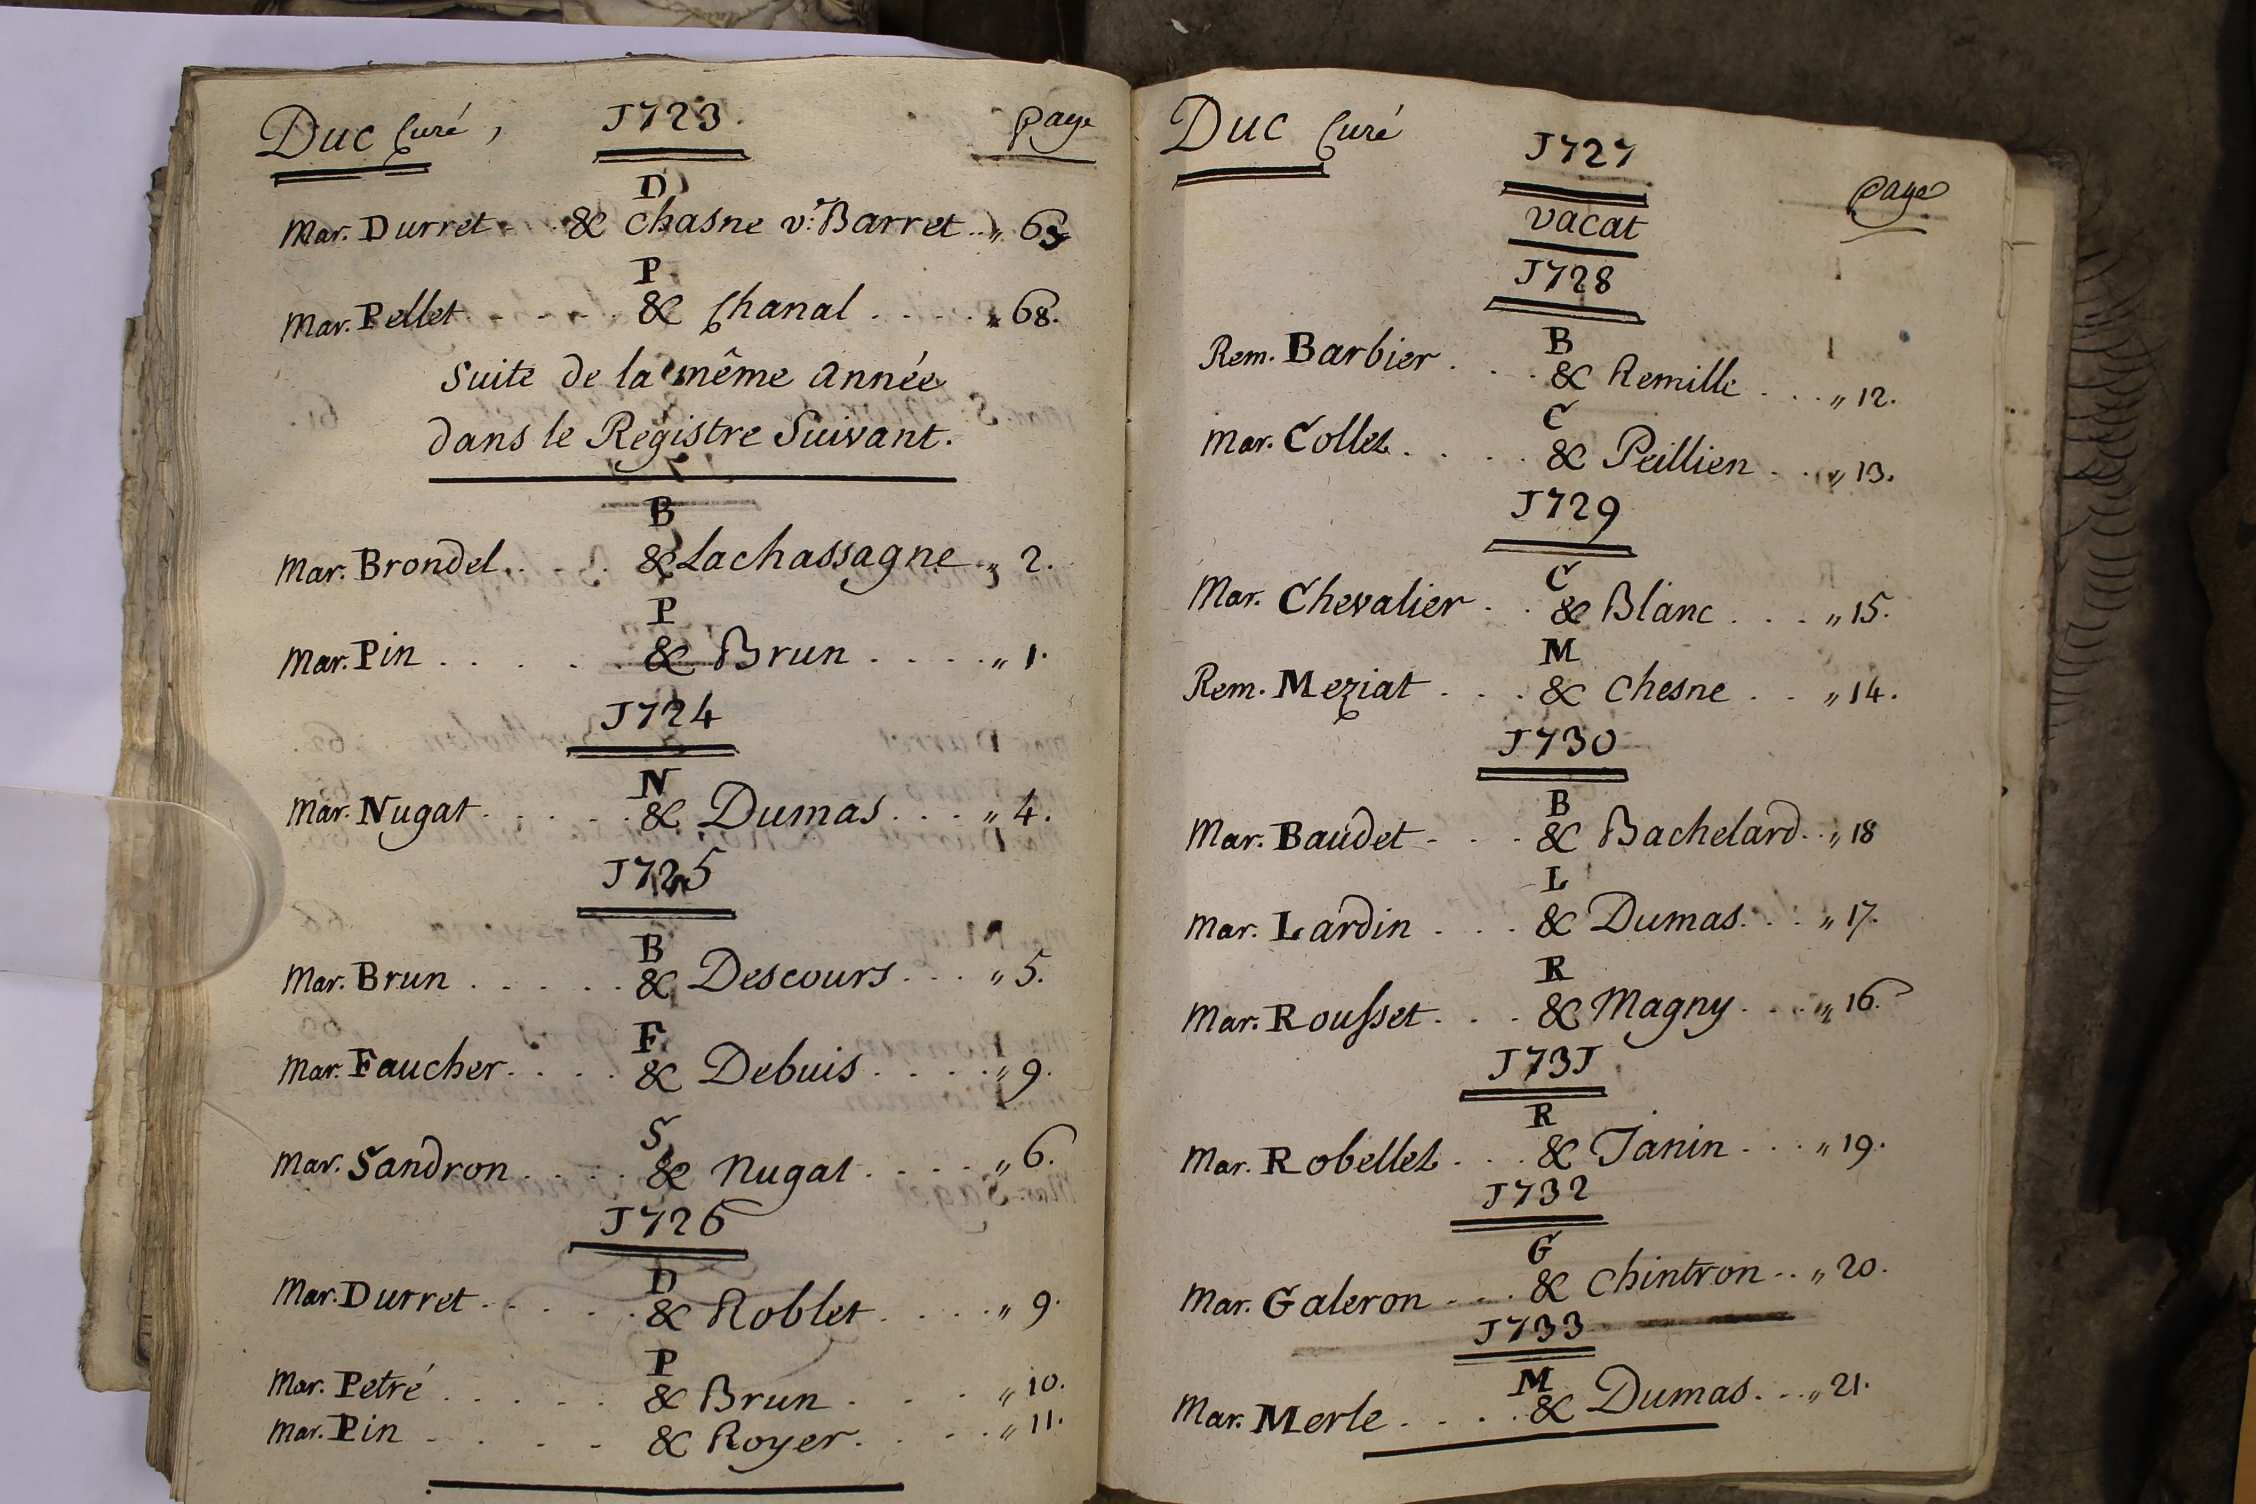 Duc Curé, 1723. page
D
Mar. Durret & Chasne v.e Barret „ 65
P
Mar. Pellet & Chanal „ 68.
Suite de la même Année
dans le Registre Suivant.
B
Mar. Brondel & Lachassagne „ 2.
P
Mar. Pin & Brun „ 1.
1724
N
Mar. Nugat & Dumas „ 4.
1725
B
Mar. Brun & Descours „ 5.
F
Mar. Faucher & Debuis „ 9.
S
Mar. Sandron & Nugat „ 6.
1726
D
Mar. Durret & Roblet „ 9.
P
Mar. Petré & Brun „ 10.
Mar. Pin & Royer „ 11.
Duc Curé 1727 page
vacat
1728
B
Rem. Barbier & Remille „ 12.
C
Mar. Collet & Peillien „ 13.
1729
C
Mar. Chevalier & Blanc „ 15.
M
Rem. Meziat & Chesne „ 14.
1730
B
Mar. Baudet & Bachelard „ 18
L
Mar. Lardin & Dumas „ 17.
R
Mar. Rousset & Magny „ 16.
1731
R
Mar. Robellet & Janin „ 19.
1732
G
Mar. Galeron & Chintron „ 20.
1733
M
Mar. Merle & Dumas „ 21.